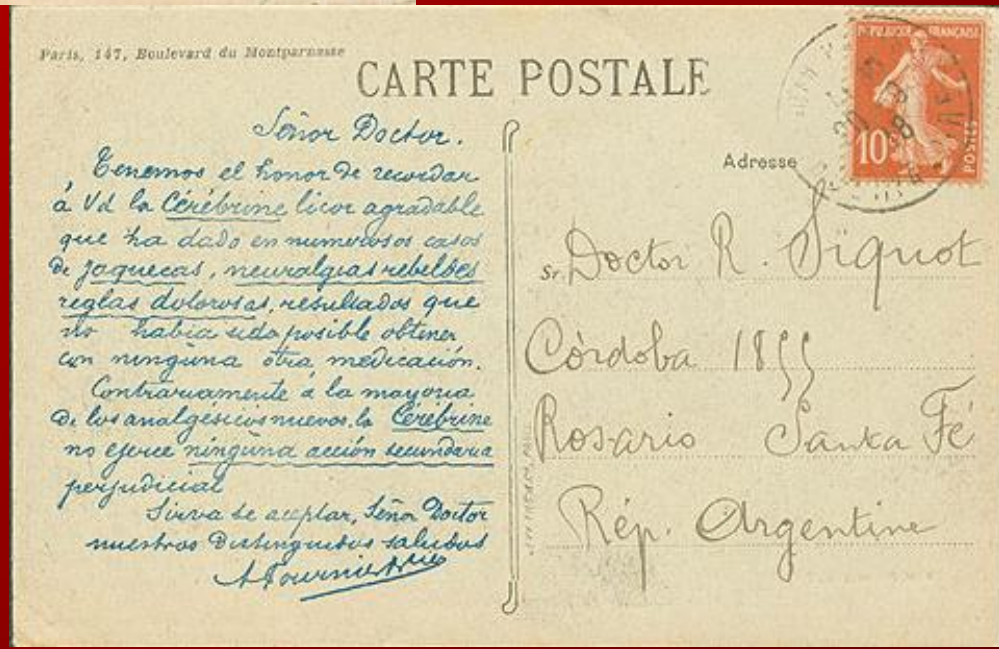 Paris, 147, Boulevard du Montparnasse
CARTE POSTALE
Señor Doctor.
Tenemos el honor de recordar
á Vd la Cérébrine licor agradable
que ha dado en numerosos casos
de jaquecas, neuralgias rebeldes
reglas dolorosas, resultados que
no habia sido posible obtener
con ninguna otra medicación.
Contrariamente á la mayoria
de los analgesicos nuevos, la Cérébrine
no ejerce ninguna acción secundaria
perjudicial
Sirva se aceptar, Señor Doctor
nuestros distinguidos saludos
REPUBLIQUE FRANÇAISE
10
POSTES
Adresse
Sr. Doctor R. Siquot
Córdoba 1855
Rosario Santa Fé
Rép. Argentine